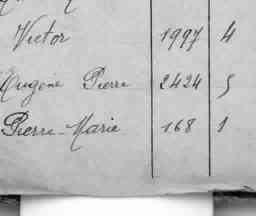 Victor 1997 4
Eugène Pierre 2424 5
Pierre-Marie 168 1